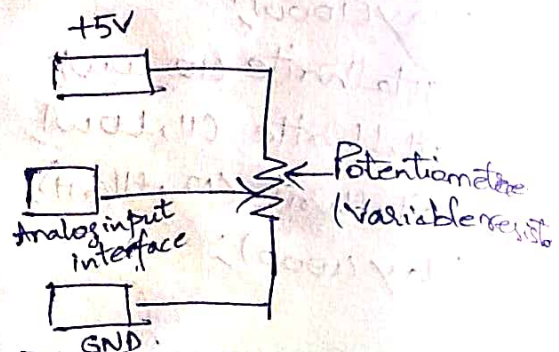 +5V
Potentiometre
(Variable resist
Analog input
interface
GND.